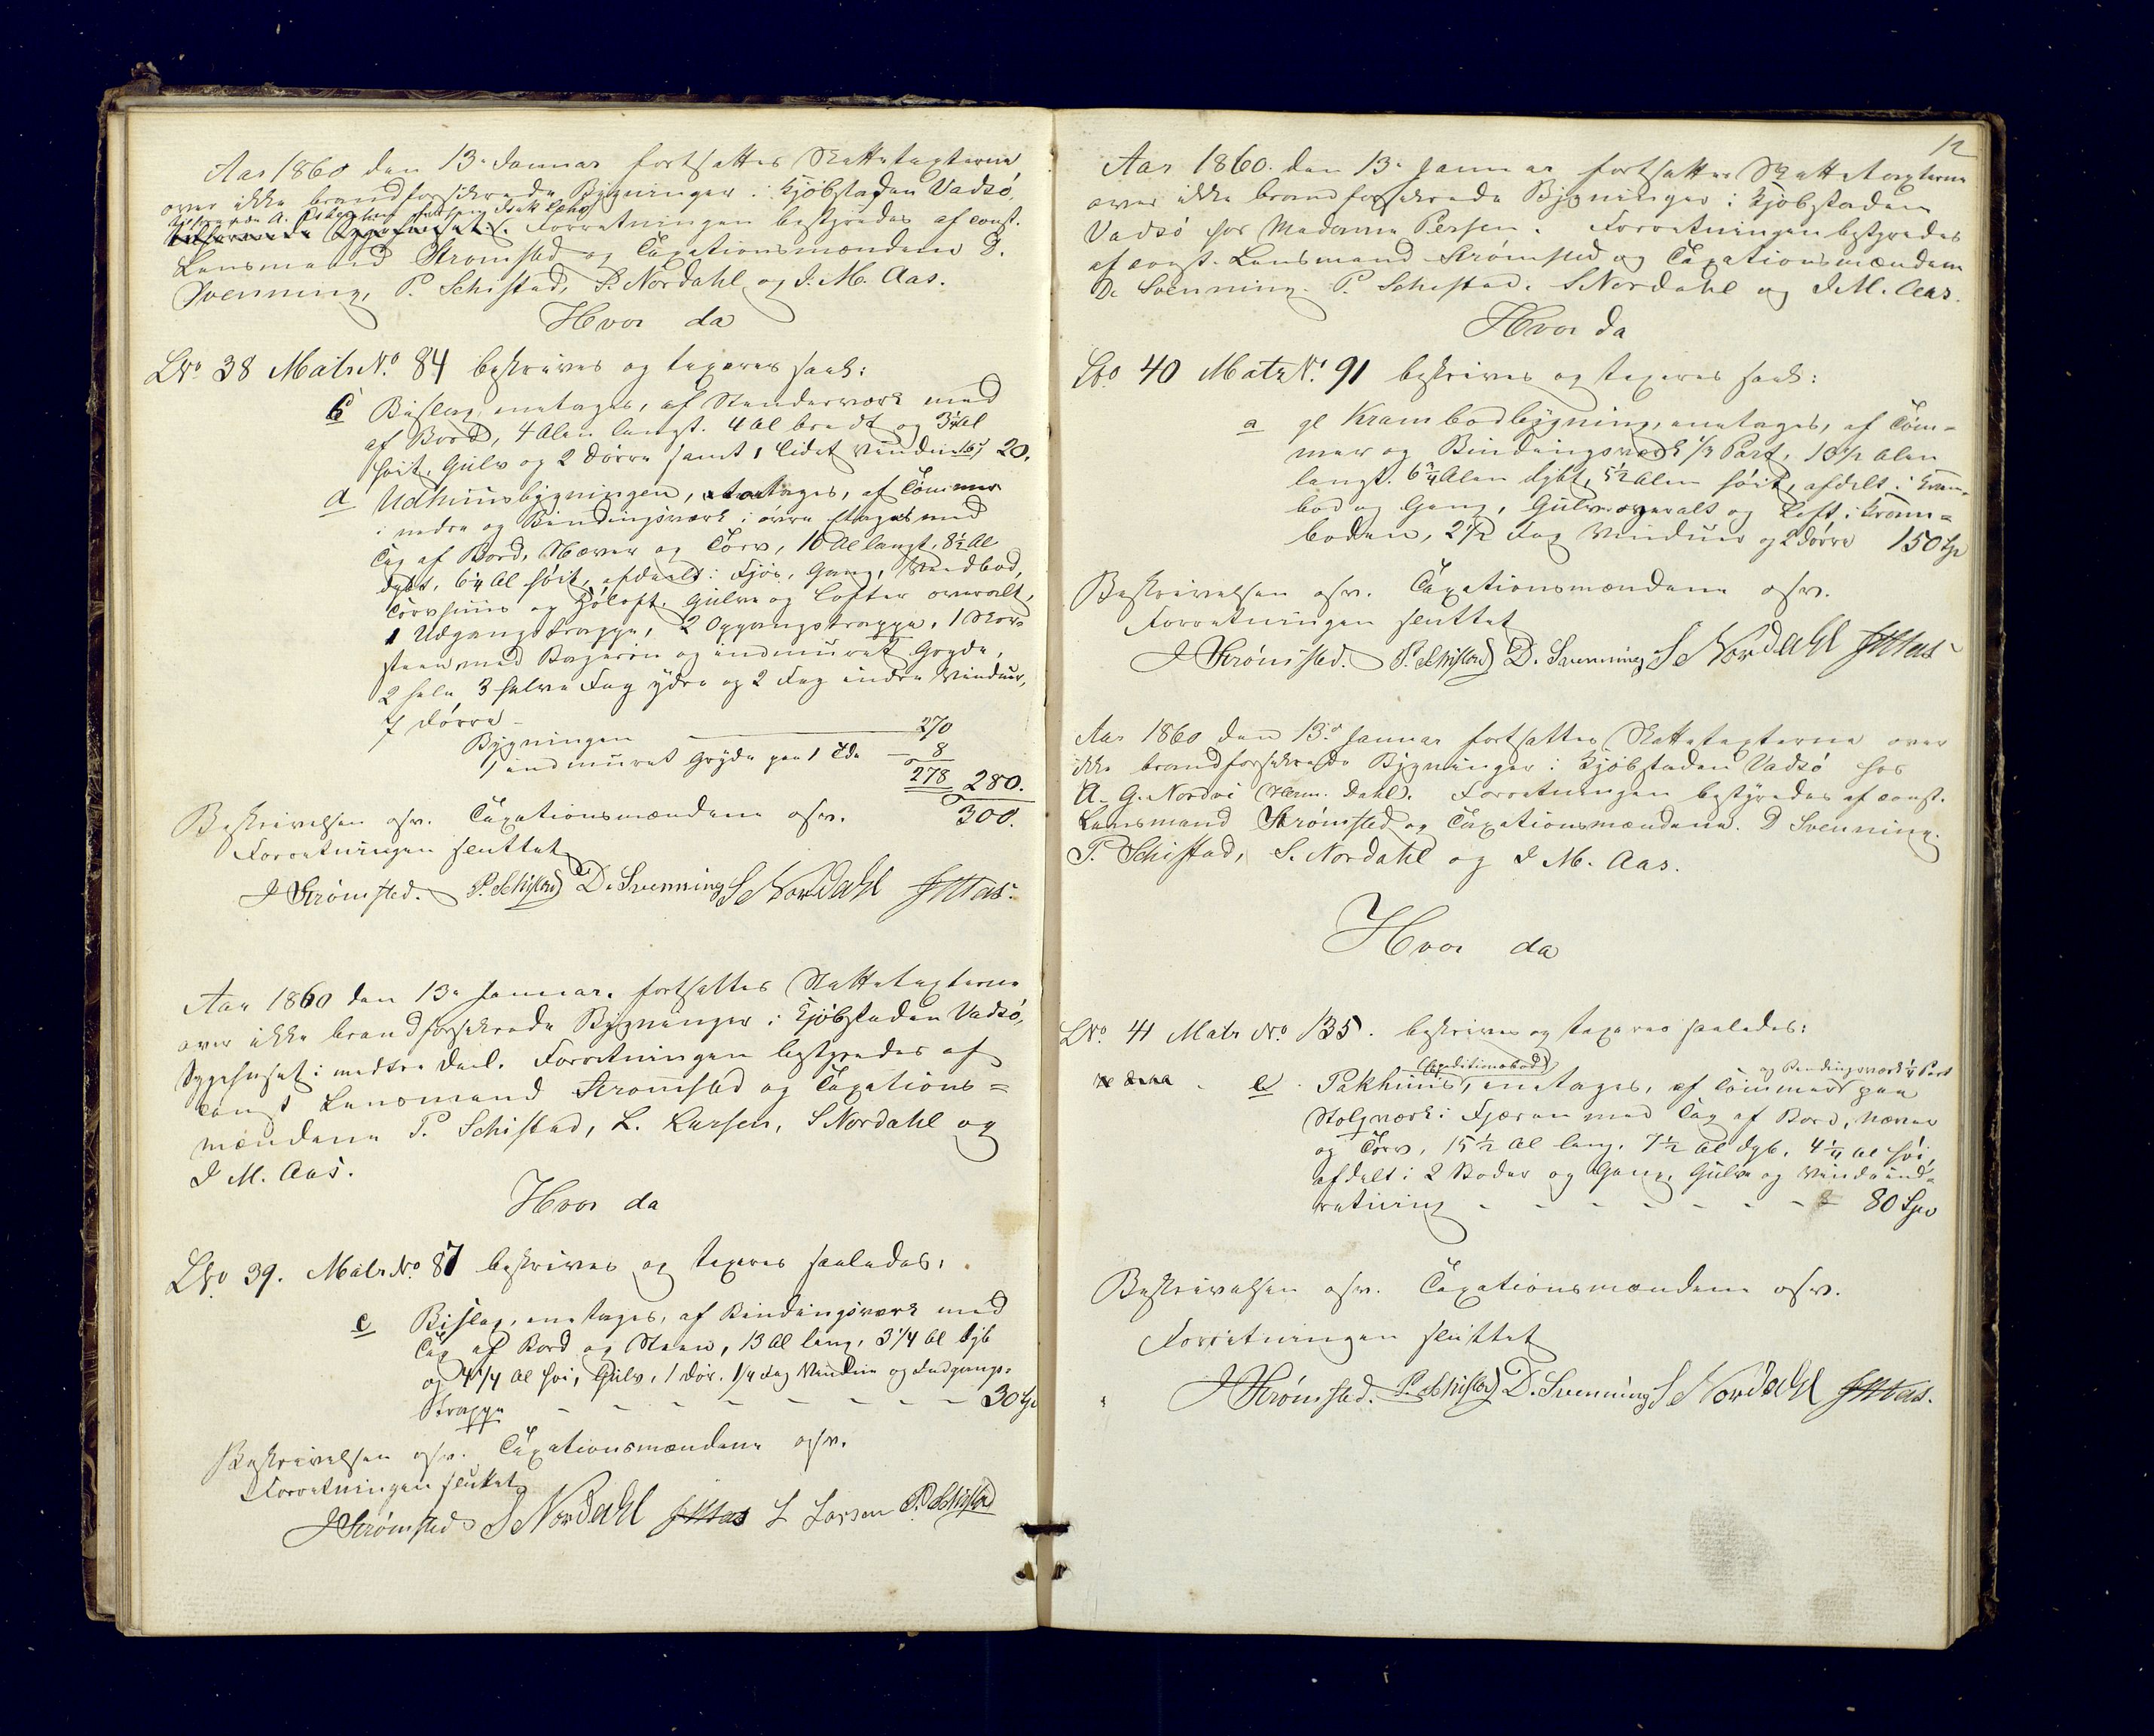 Aar 1860 den 13de Januar fortsattes Skattetaxterne
over ikke brandforsikrede Bygninger i Kjøbstaden Vadsø,
tilhørende A. Esbensen
tilhørende Sygehuset. Forretningen bestyredes af const.
Lensmand Strømsted og Taxationsmændene D.
Svenning, P. Schistad, S. Nordahl og J. M. Aas.
Hvor da
LNo 38 Matr No. 84 beskrives og taxeres saal:
b Bislag, enetages, af Stenderværk med
af Bord, 4 Alen langt. 4 Al bredt og 3¼ Al
høit, Gulv og 2 Dørre samt 1 lidet Vindue 20.
d Udhuusbygningen, toetages, af Tømmer
i nedre og Bindingsværk i øvre Etage med
Tag af Bord, Næver og Torv, 16 Al langt, 8½ Al
dybt, 6¼ Al høit, afdeelt i Fjøs, Gang, Vedbod,
Torvhuus og Høloft. Gulve og Lofter overalt,
1 Udgangstrappe, 2 Opgangstrappe, 1 Skor-
steen med Bageovn og indmuret Gryde,
2 hele 3 halve Fag ydre og 2 Fag indre Vinduer,
7 Dørre
Bygningen 270
1 indmuret Gryde paa 1 Tde 8
278 280.
300.
Beskrivelsen osv. Taxationsmændene osv.
Forretningen sluttet
J Strømsted. P. Schistad D. Svenning S Nordahl JMAas.
Aar 1860 den 13de Januar. fortsattes Skattetaxterne
over ikke brandforsikrede Bygninger i Kjøbstaden Vadsø,
Sygehuset i nedre Deel. Forretningen bestyredes af
const Lensmand Strømsted og Taxations=
mændene P. Schistad, L. Larsen, S Nordahl og
J M. Aas.
Hvor da
LNo 39. Matr No. 87 beskrives og taxeres saaledes,
c Bislag, enetages, af Bindingsværk med
Tag af Bord og Steen, 13 Al lang, 3¼ Al dyb
og 4¼ Al høi, Gulv, 1 Dør. ¼ Fag Vindue og Indgangs-
Trappe - - - - - - - - 30 Spd
Beskrivelsen osv. Taxationsmændene osv.
Forretningen sluttet
J Strømsted S Nordahl JMAas L Larsen P. Schistad
12
Aar 1860. den 13de Januar fortsattes Skattetaxterne
over ikke brandforsikrede Bygninger i Kjøbstaden
Vadsø hos Madame Persen. Forretningen bestyredes
af const. Lensmand Strømsted og Taxationsmændene
D. Svenning. P. Schistad. S Nordahl og J. M. Aas.
Hvor da
LNo 40 Matr No. 91 beskrives og taxeres saal:
a gl Krambodbygning, enetages, af Tøm=
mer og Bindingsværk 1/3 Part, 13½ Alen
langt. 6¾ Alen dybt, 5½ Alen høit, afdelt i Kram-
bod og Gang, Gulv overalt og Loft i Kram=
boden, 2½ Fag Vinduer og 2 Dørre 150 Spd
Beskrivelsen osv. Taxationsmændene osv.
Forretningen sluttet
J Strømsted. P. Schistad D. Svenning S Nordahl JMAas
Aar 1860 den 13de Januar fortsattes Skattetaxterne over
ikke brandforsikrede Bygninger i Kjøbstaden Vadsø hos
A. G. Nordvi (Herm. Dahl). Forretningen bestyredes af const.
Lensmand Strømsted og Taxationsmændene. D Svenning.
P. Schistad, S. Nordahl og J M. Aas.
Hvor da
LNo. 41 Matr No. 135. beskrives og taxeres saaledes:
(Expeditionsbod) og Bindingsværk ¼ Part
e Pakhuus, enetages, af Tømmer paa
Stolpværk i Fjæren med Tag af Bord, Næver
og Torv, 15½ Al lang. 7½ Al dyb. 4¼ Al høi,
afdelt i 2 Boder og Gang, Gulv og Vindeind-
retning - - - - - - - 80 Spd
Beskrivelsen osv. Taxationsmændene osv.
Forretningen sluttet
J Strømsted. P. Schistad D. Svenning S Nordahl JMAas.